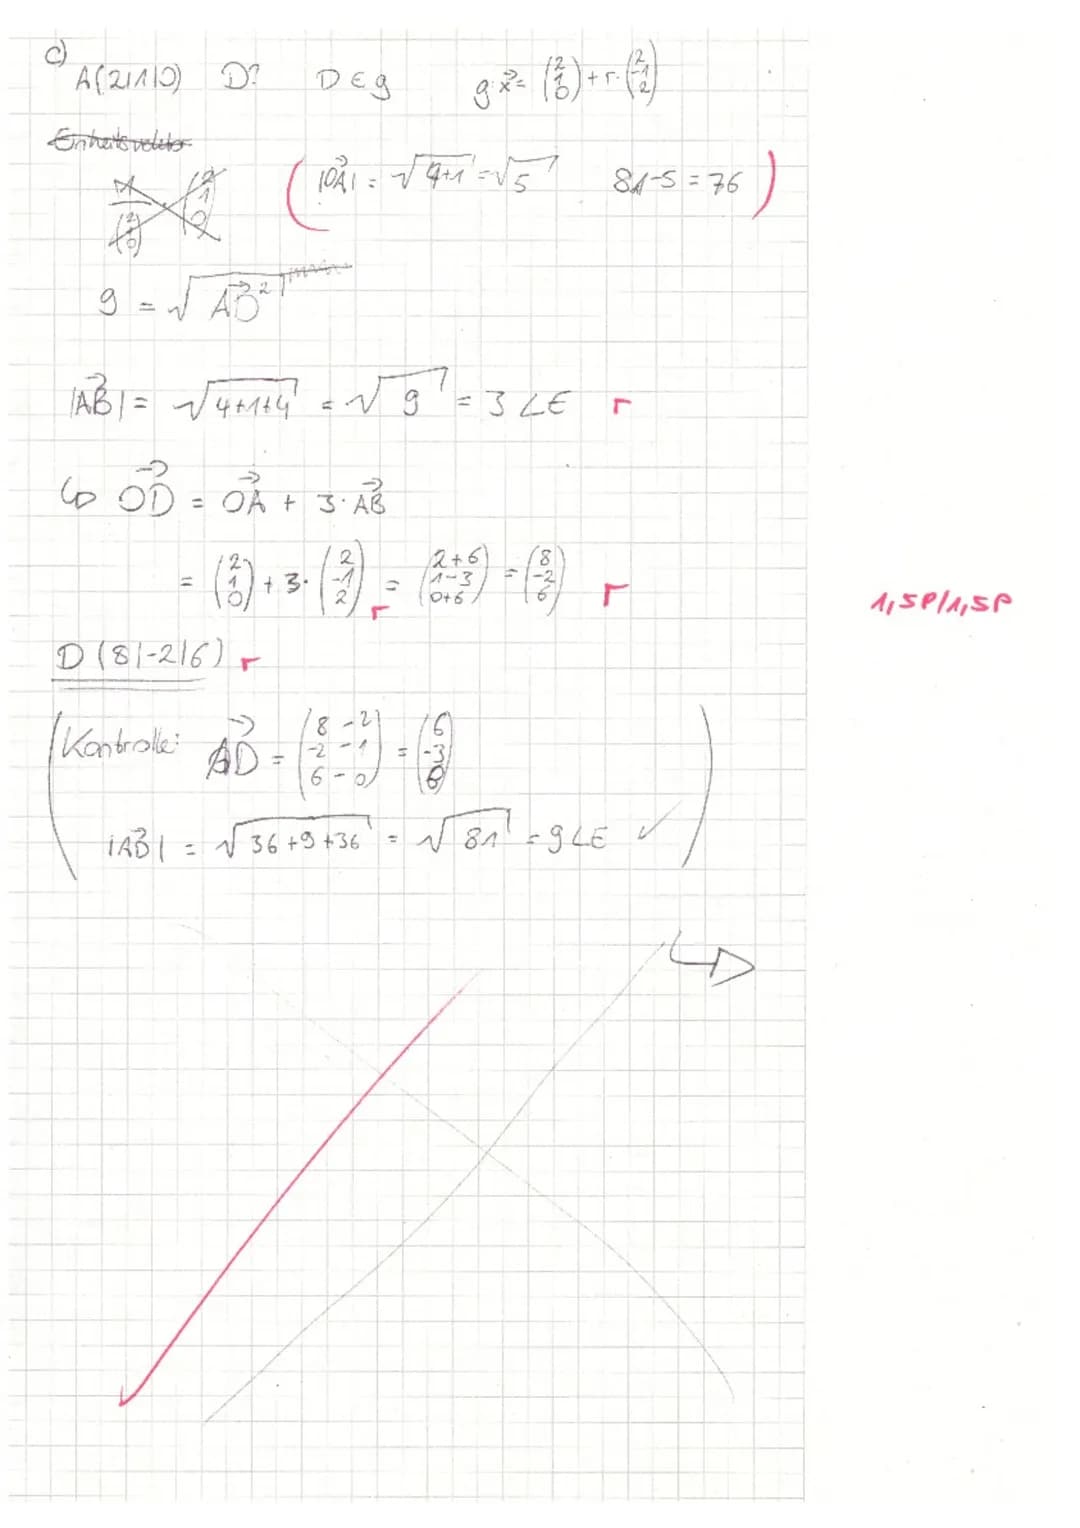 c)
A(2|1|0) D? D ∈ g g: x⃗ = (2 1 0) + r · (2 -1 2)
Einheitsvektor
1 / (2 1 0) (2 1 0)
( |OA⃗| = √4+1 = √5 81-5 = 76 )
9 = √AD⃗²
|AB⃗| = √4+1+4 = √9 = 3 LE r
↳ OD⃗ = OA⃗ + 3 · AB⃗
= (2 1 0) + 3 · (2 -1 2) r = (2+6 1-3 0+6) = (8 -2 6) r
1,5P/1,5P
D (8|-2|6) r
( Kontrolle: AD⃗ = (8-2 -2-1 6-0) = (6 -3 6)
|AB⃗| = √36+9+36 = √81 = 9 LE ✓ )